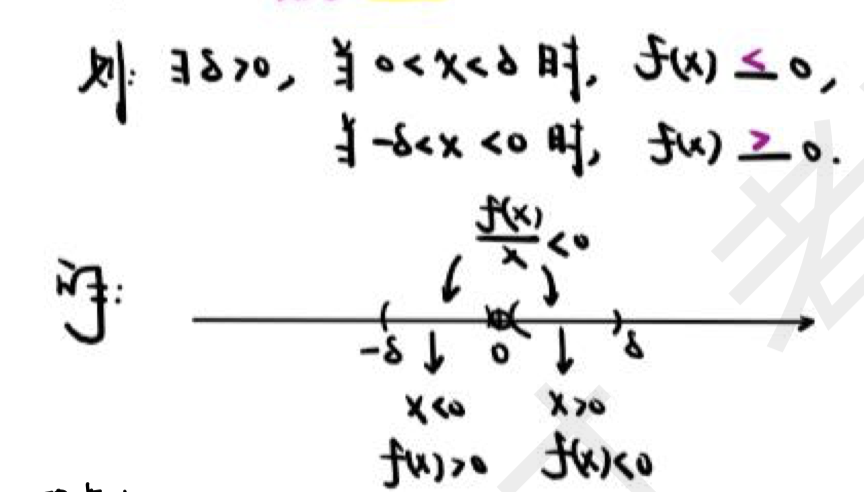 则: ∃δ>0, 当 0<x<δ 时, f(x) < 0,
当 -δ<x<0 时, f(x) > 0.
f(x)/x <0
证:
-δ 0 δ
x<0 x>0
f(x)>0 f(x)<0
老